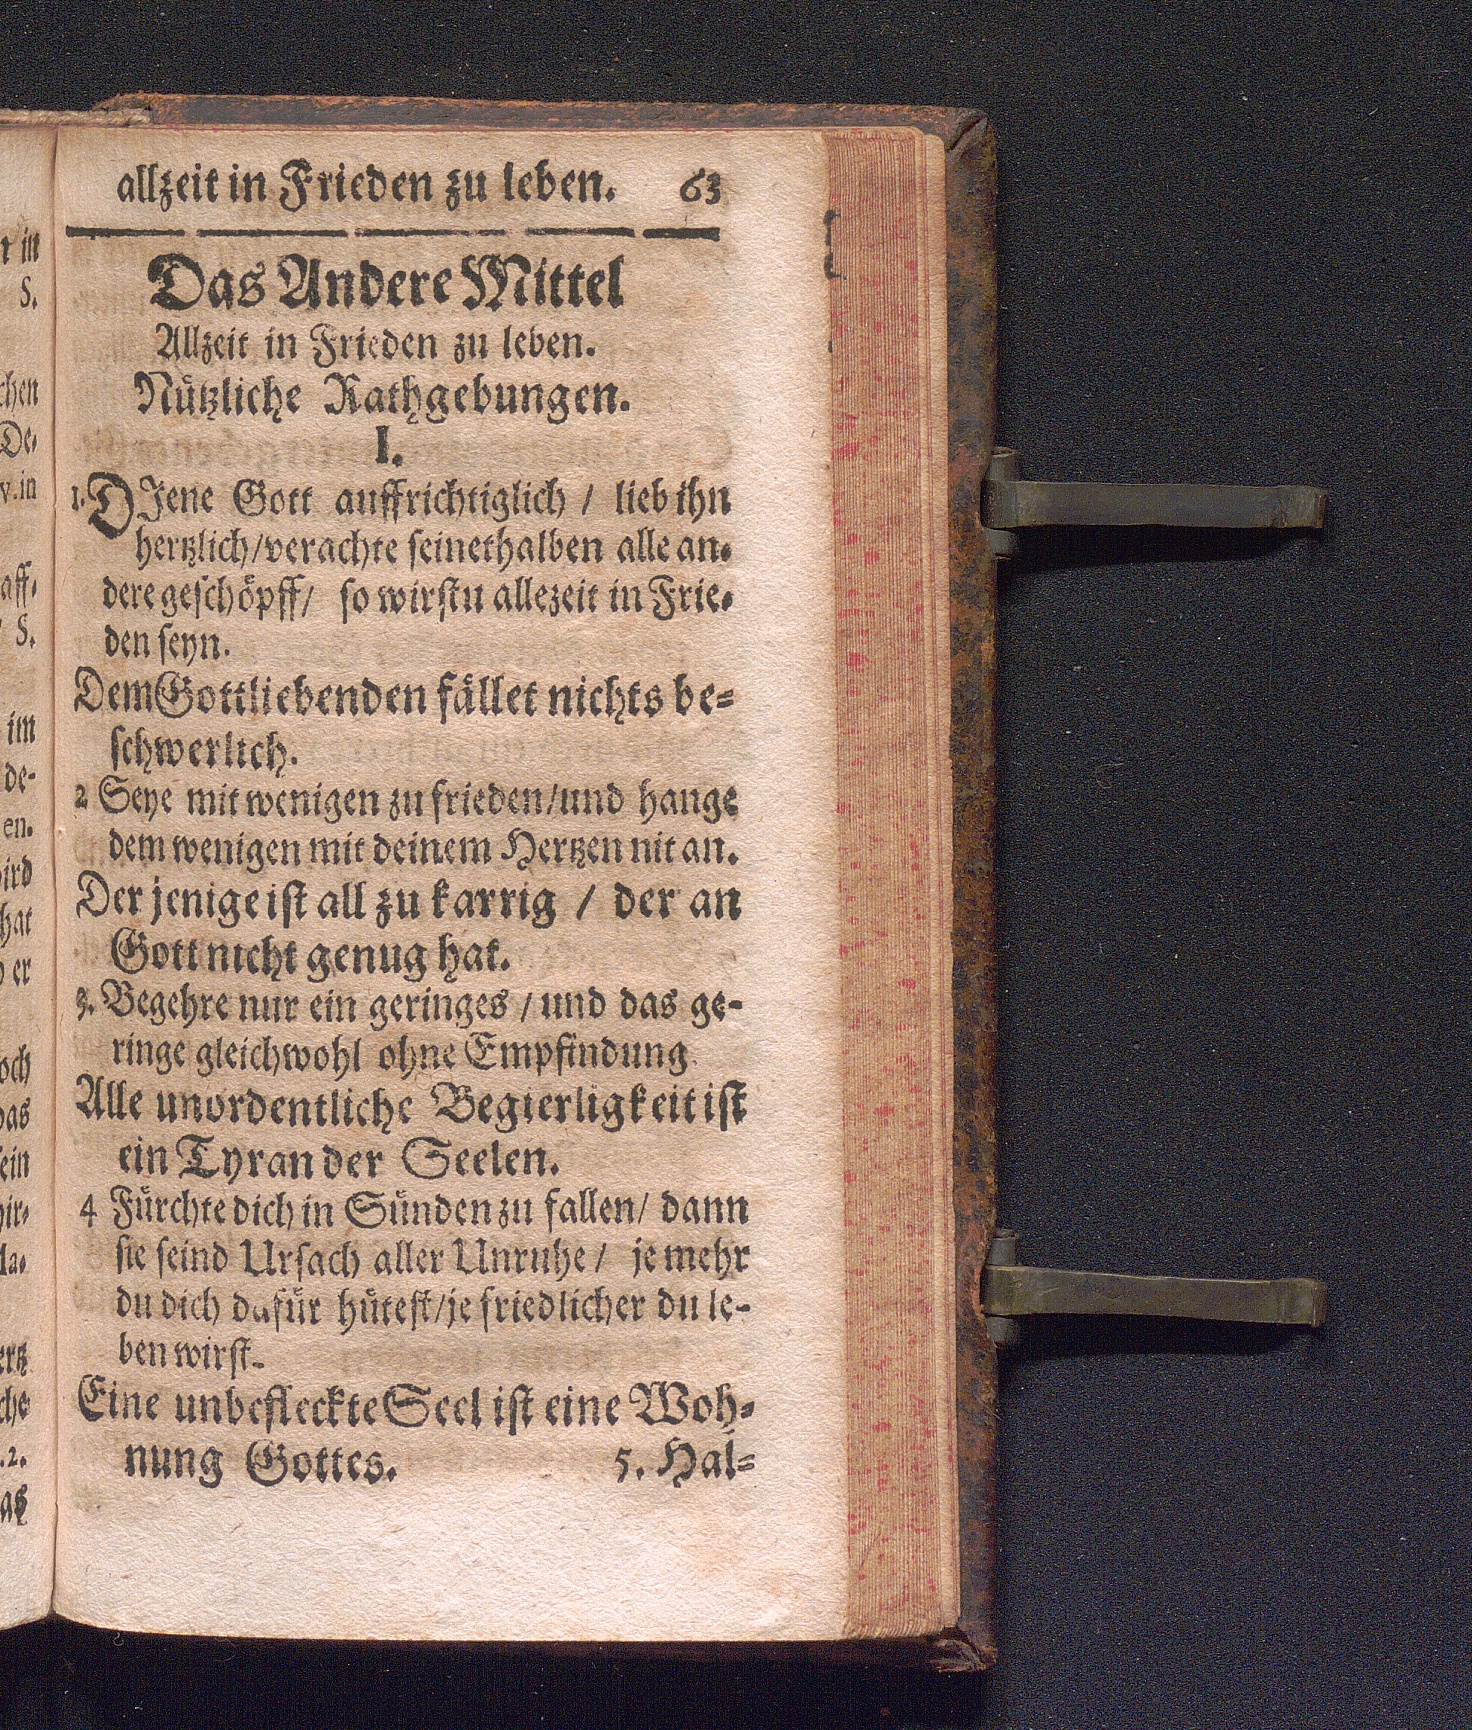 allzeit in Frieden zu leben. 63
Das Andere Mittel
Allzeit in Frieden zu leben.
Nützliche Rathgebungen.
I.
1. DJene Gott auffrichtiglich / lieb ihn
hertzlich/verachte seinethalben alle an-
dere geschöpff/ so wirstu allezeit in Frie-
den seyn.
Dem Gottliebenden fället nichts be-
schwerlich.
2 Seye mit wenigen zu frieden/und hange
dem wenigen mit deinem Hertzen nit an.
Der jenige ist all zu karrig / der an
Gott nicht genug hat.
3. Begehre nur ein geringes / und das ge-
ringe gleichwohl ohne Empfindung.
Alle unordentliche Begierligkeit ist
ein Tyran der Seelen.
4 Fürchte dich in Sünden zu fallen/ dann
sie seind Ursach aller Unruhe / je mehr
du dich dafür hütest/je friedlicher du le-
ben wirst.
Eine unbefleckte Seel ist eine Woh-
nung Gottes. 5. Hal-